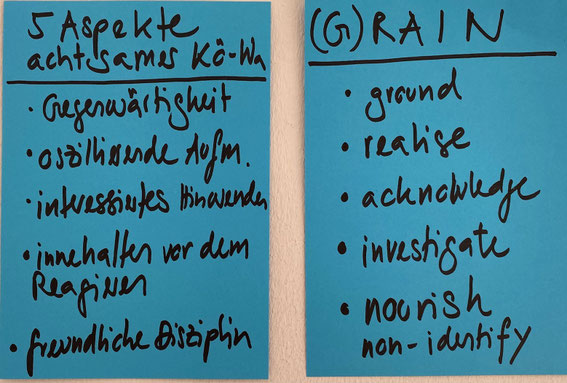 5 Aspekte
achtsames Kö-Wa
• Gegenwärtigkeit
• oszillierende Aufm.
• interessiertes Hinwenden
• innehalten vor dem
Reagieren
• freundliche Disziplin
(G) RAIN
• ground
• realise
• acknowledge
• investigate
• nourish
non-identify